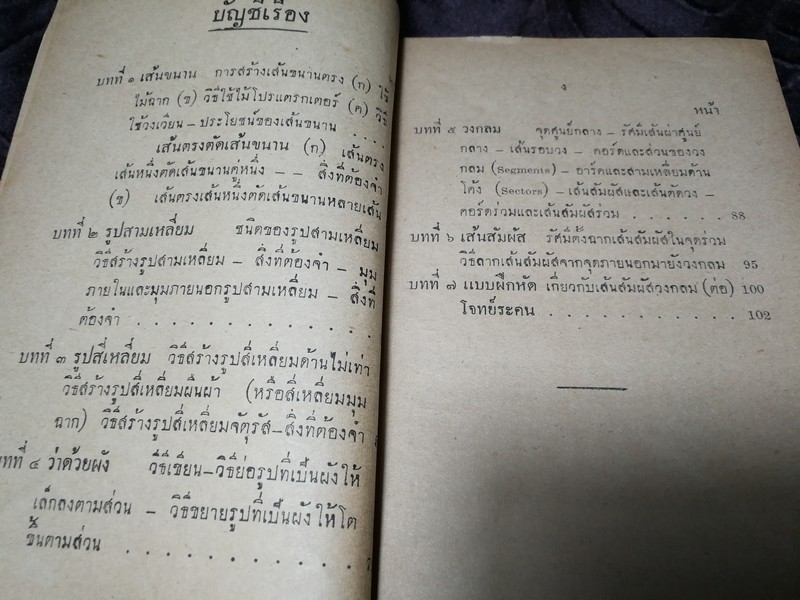 บัญชีเรื่อง
บทที่ ๑ เส้นขนาน การสร้างเส้นขนานตรง (ก) ใช้
ไม้ฉาก (ข) วิธีใช้ไม้โปรแตรกเตอร์ (ค) วิธี
ใช้วงเวียน – ประโยชน์ของเส้นขนาน . . . .
เส้นตรงตัดเส้นขนาน (ก) เส้นตรง
เส้นหนึ่งตัดเส้นขนานคู่หนึ่ง – – สิ่งที่ต้องจำ
(ข) เส้นตรงเส้นหนึ่งตัดเส้นขนานหลายเส้น
บทที่ ๒ รูปสามเหลี่ยม ชนิดของรูปสามเหลี่ยม
วิธีสร้างรูปสามเหลี่ยม – สิ่งที่ต้องจำ – มุม
ภายในและมุมภายนอกรูปสามเหลี่ยม – สิ่งที่
ต้องจำ . . . . . . . . . . . . .
บทที่ ๓ รูปสี่เหลี่ยม วิธีสร้างรูปสี่เหลี่ยมด้านไม่เท่า
วิธีสร้างรูปสี่เหลี่ยมผืนผ้า (หรือสี่เหลี่ยมมุม
ฉาก) วิธีสร้างรูปสี่เหลี่ยมจัตุรัส–สิ่งที่ต้องจำ
บทที่ ๔ ว่าด้วยผัง วิธีเขียน–วิธีย่อรูปที่เป็นผังให้
เล็กลงตามส่วน – วิธีขยายรูปที่เป็นผังให้โต
ขึ้นตามส่วน . . . . . . . . . . .
ง
หน้า
บทที่ ๕ วงกลม จุดศูนย์กลาง – รัศมีเส้นผ่าศูนย์
กลาง – เส้นรอบวง – คอร์ดและส่วนของวง
กลม (Segments) – อาร์คและสามเหลี่ยมด้าน
โค้ง (Sectors) – เส้นสัมผัสและเส้นตัดวง –
คอร์ดร่วมและเส้นสัมผัสร่วม . . . . . . . 88
บทที่ ๖ เส้นสัมผัส รัศมีตั้งฉากเส้นสัมผัสในจุดร่วม
วิธีลากเส้นสัมผัสจากจุดภายนอกมายังวงกลม 95
บทที่ ๗ แบบฝึกหัด เกี่ยวกับเส้นสัมผัสวงกลม (ต่อ) 100
โจทย์ระคน . . . . . . . . . . . 102